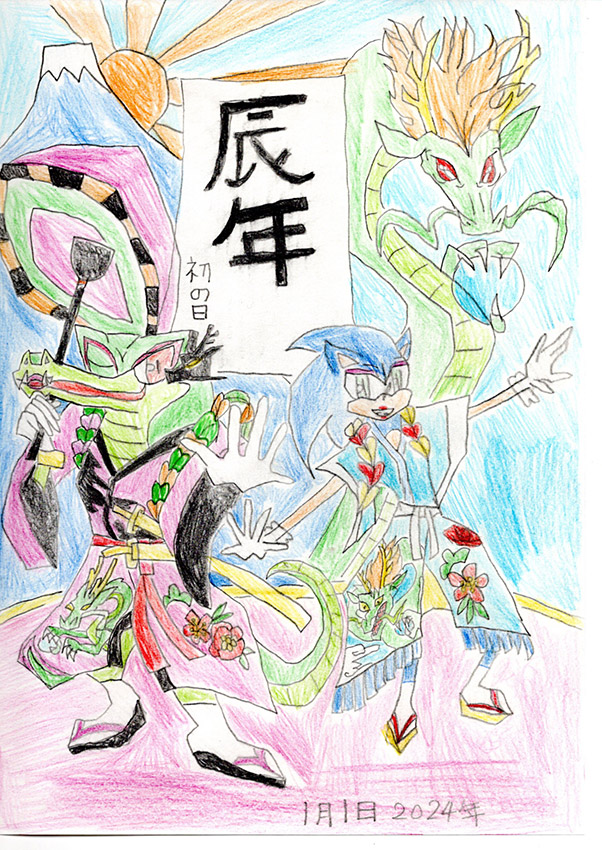 辰年
初の日
1月1日 2024年